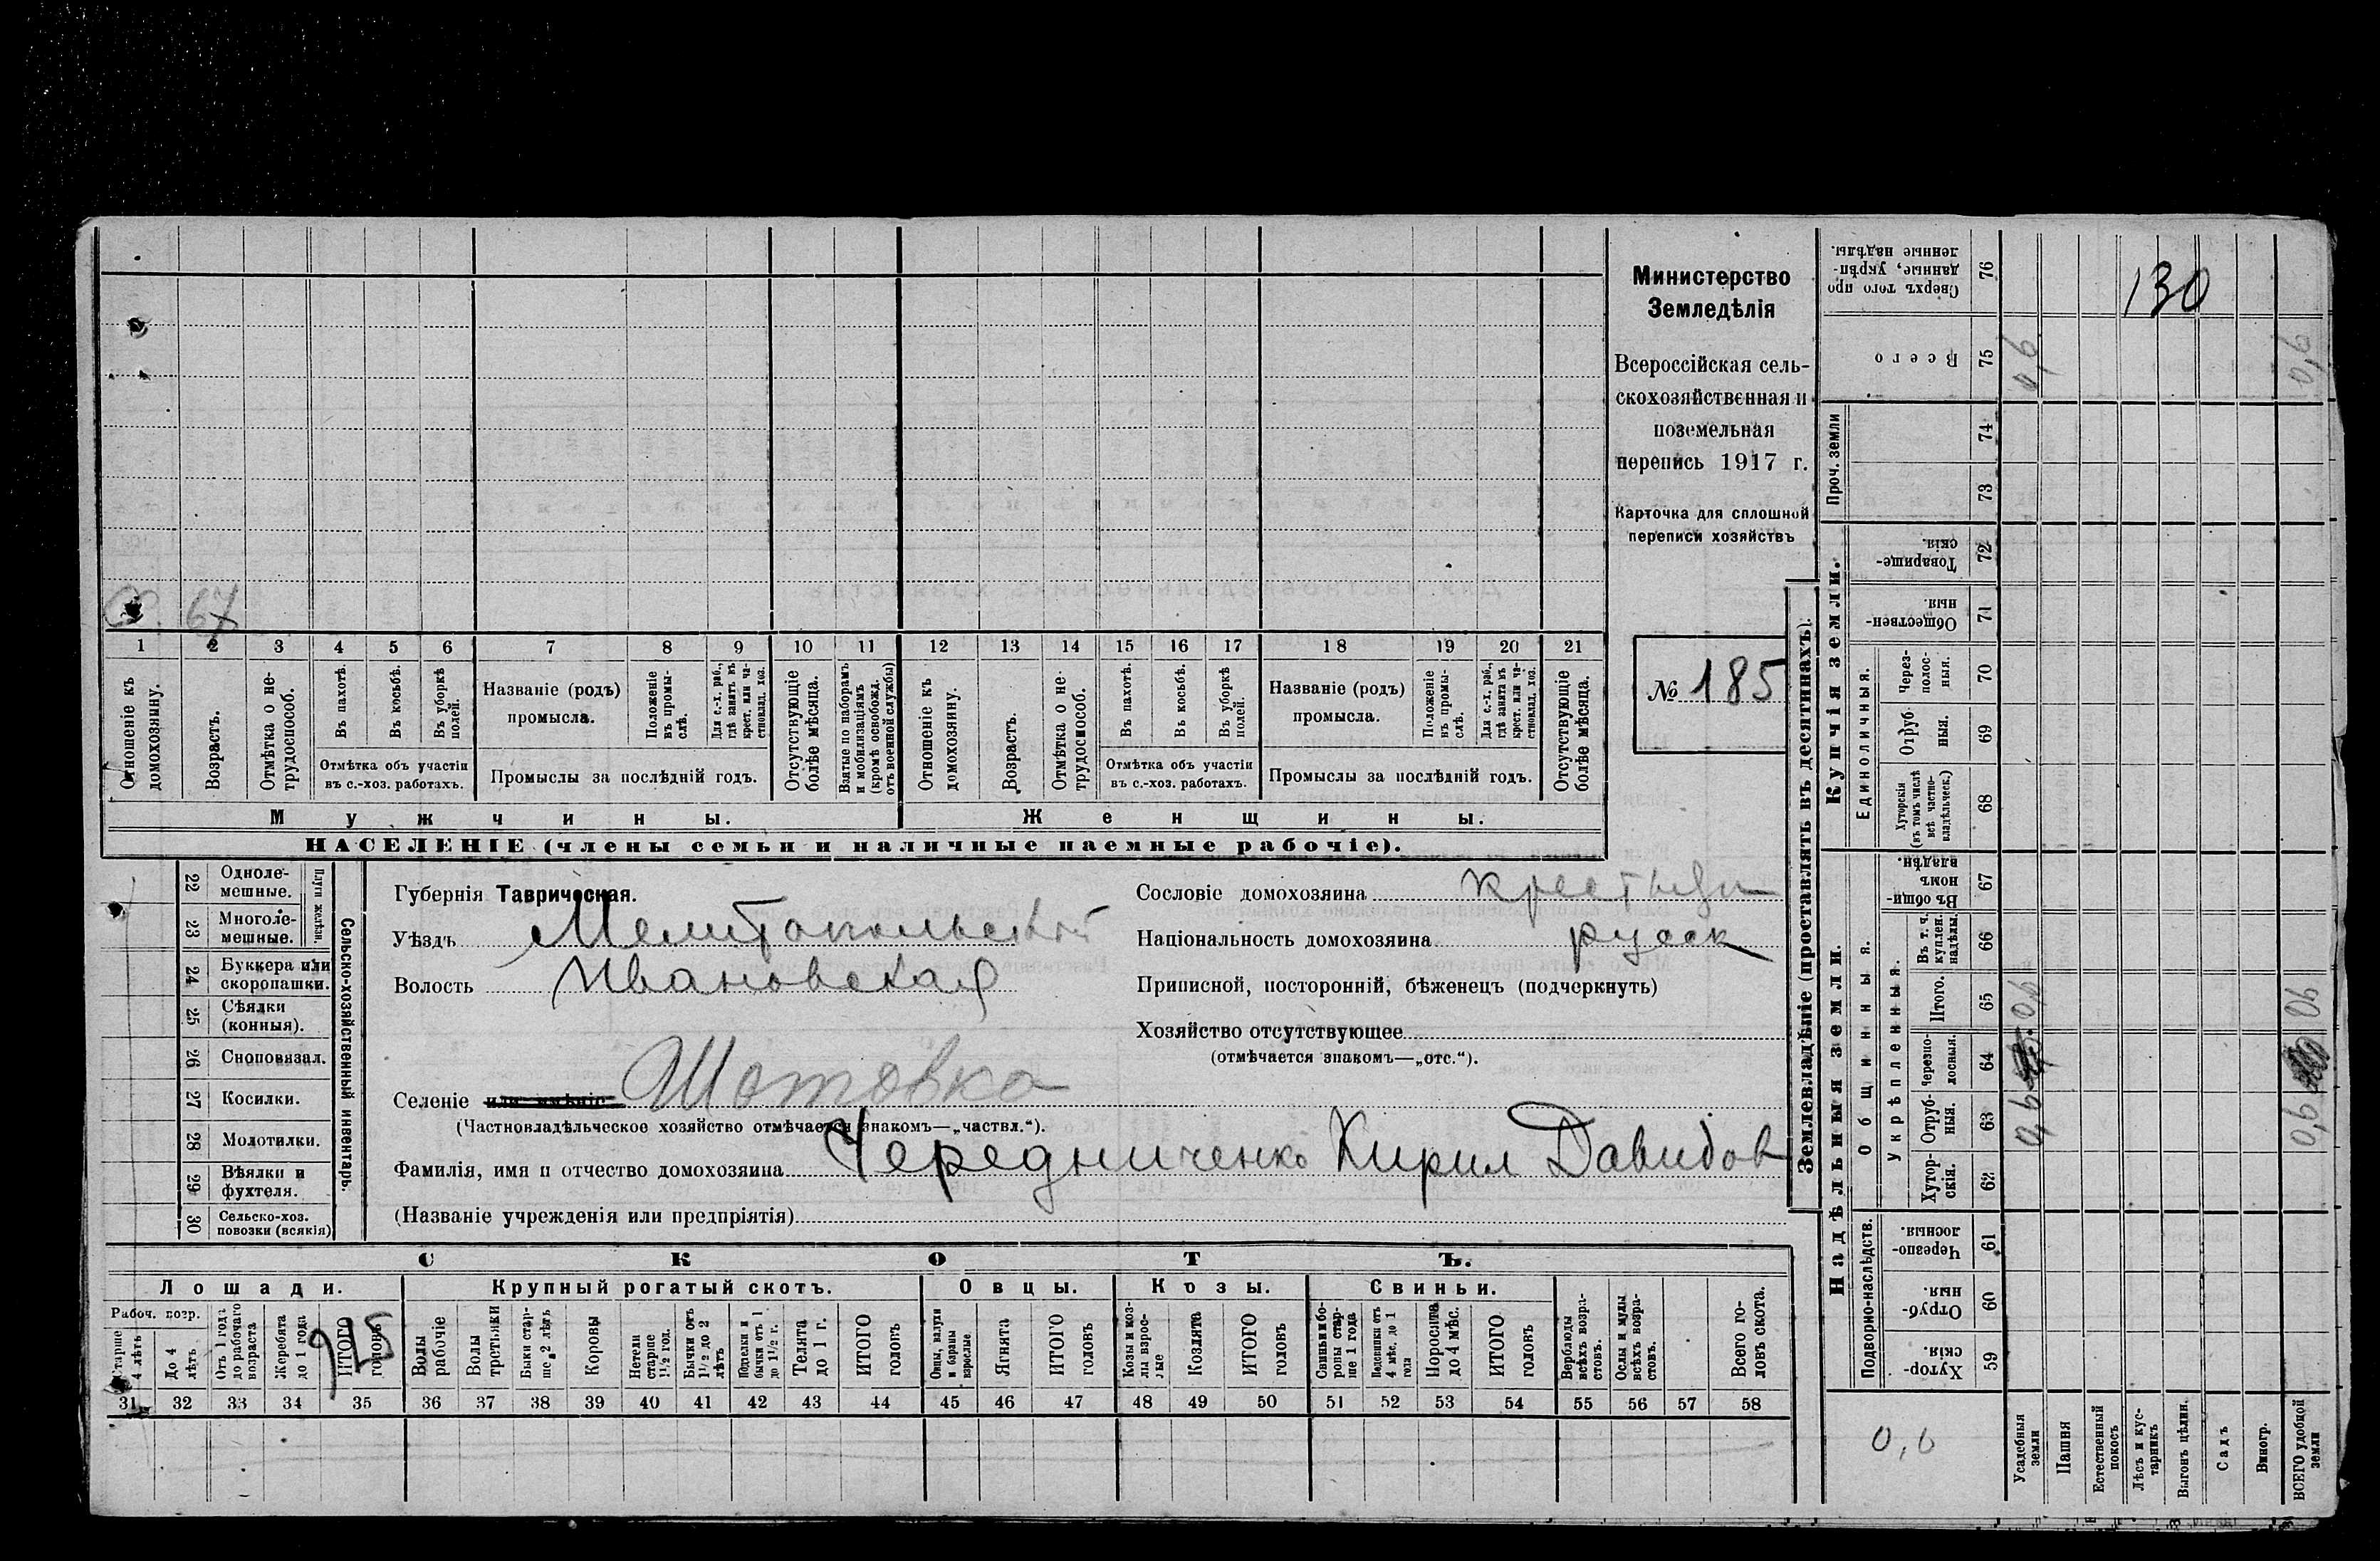 Министерство
Земледѣлія
Всероссійская сель-
скохозяйственная и
поземельная
перепись 1917 г.
Карточка для сплошной
переписи хозяйствъ
№ 185
67
1 2 3 4 5 6 7 8 9 10 11 12 13 14 15 16 17 18 19 20 21
Отношеніе къ домохозяину.
Возрастъ.
Отмѣтка о не-трудоспособ.
Въ пахотѣ.
Въ косьбѣ.
Въ уборкѣ полей.
Отмѣтка объ участіи
въ с.-хоз. работахъ.
Названіе (родъ)
промысла.
Положеніе въ промы-слѣ.
Для с.-х. раб., гдѣ занятъ въ крест. или ча-стновлад. хоз.
Промыслы за послѣдній годъ.
Отсутствующіе болѣе мѣсяца.
Взятые по наборамъ и мобилизаціямъ (кромѣ освобожд. отъ военной службы)
Отношеніе къ домохозяину.
Возрастъ.
Отмѣтка о не-трудоспособ.
Въ пахотѣ.
Въ косьбѣ.
Въ уборкѣ полей.
Отмѣтка объ участіи
въ с.-хоз. работахъ.
Названіе (родъ)
промысла.
Положеніе въ промы-слѣ.
Для с.-х. раб., гдѣ занята въ крест. или ча-стновлад. хоз.
Промыслы за послѣдній годъ.
Отсутствующіе болѣе мѣсяца.
Мужчины.
Женщины.
НАСЕЛЕНІЕ (члены семьи и наличные наемные рабочіе).
22 Одноле-мешные.
23 Многоле-мешные.
Плуги желѣзн.
24 Буккера или скоропашки.
25 Сѣялки (конныя).
26 Сноповязал.
27 Косилки.
28 Молотилки.
29 Вѣялки и фухтеля.
30 Сельско-хоз. повозки (всякія)
Сельско-хозяйственный инвентарь.
Губернія Таврическая.
Уѣздъ Мелитопольскій
Волость Ивановская
Селеніе или имѣніе Шотовка
(Частновладѣльческое хозяйство отмѣчается знакомъ—„частвл.“).
Фамилія, имя и отчество домохозяина Чередниченко Кирил Давидов
(Названіе учрежденія или предпріятія)
Сословіе домохозяина
Національность домохозяина русск
Приписной, посторонній, бѣженецъ (подчеркнуть)
Хозяйство отсутствующее
(отмѣчается знакомъ—„отс.“).
СКОТЪ.
Лошади.
Крупный рогатый скотъ.
Овцы.
Козы.
Свиньи.
Рабоч. возр.
Старше 4 лѣтъ
До 4 лѣтъ
Отъ 1 года до рабочаго возраста
Жеребята до 1 года
ИТОГО головъ
925
Волы рабочіе
Волы третьяки
Быки стар-ше 2 лѣтъ
Коровы
Нетели старше 1½ год.
Бычки отъ 1½ до 2 лѣтъ
Телята до 1 г.
ИТОГО головъ
Овцы, валухи и бараны взрослые.
Ягнята
ИТОГО головъ
Козы и коз-лы взрос-лые
Козлята
ИТОГО головъ
Свиньи и бо-ровы стар-ше 1 года
Подсвинки отъ 4 мѣс. до 1 года
Поросята до 4 мѣс.
ИТОГО головъ
Верблюды всѣхъ возра-стовъ.
Ослы и мулы всѣхъ возра-стовъ.
Всего го-ловъ скота.
31 32 33 34 35 36 37 38 39 40 41 42 43 44 45 46 47 48 49 50 51 52 53 54 55 56 57 58
Землевладѣніе (проставлять въ десятинахъ).
Сверхъ того про данные, укрѣп-ленные надѣлы. 76
130
Всего 75
0,9
0,9
Проч. земли
74
73
Купчія земли.
Товарище-скія. 72
Обществен-ныя. 71
Единоличныя.
Через-полос-ныя. 70
Отруб-ныя. 69
Хуторскія (въ томъ числѣ всѣ частно-владѣльческ.) 68
Надѣльныя земли.
Общинныя.
Въ общи-номъ владѣн. 67
Укрѣпленныя.
Въ т. ч. куплен. надѣлы. 66
Итого. 65
Черезпо-лосныя. 64
Отруб-ныя. 63
0,9
0,9
Хутор-скія. 62
Подворно-наслѣдств.
Черезпо-лосныя. 61
Отруб-ныя. 60
Хутор-скія. 59
Усадебныя земли
Пашня
Естественный покосъ
Лѣсъ и кус-тарникъ
Выгонъ цѣлин.
Садъ
Виногр.
ВСЕГО удобной земли